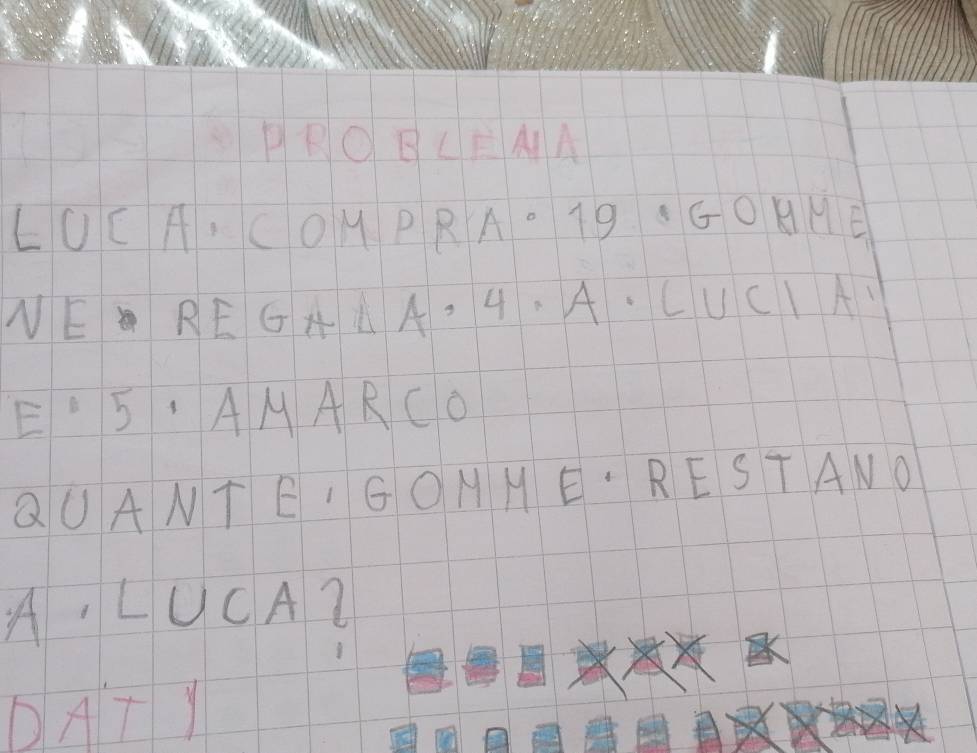 PROBLEMA
LUCA·COMPRA·19·GOMME
NE·REGALA·4·A·LUCIA·
E·5·AMARCO
QUANTE·GOMME·RESTANO
A·LUCA?
DATI